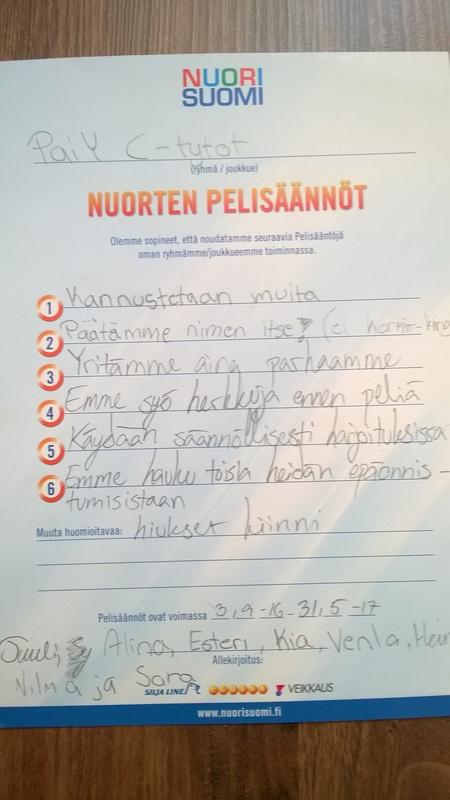 NUORI
SUOMI
PaiY C-tytöt
(ryhmä / joukkue)
NUORTEN PELISÄÄNNÖT
Olemme sopineet, että noudatamme seuraavia Pelisääntöjä
oman ryhmämme/joukkueemme toiminnassa.
1 Kannustetaan muita
2 Päätämme nimen itse! (ei kermit-king
3 Yritämme aina parhaamme
4 Emme syö herkkuja ennen peliä
5 Käydään säännöllisesti harjoituksissa
6 Emme hauku toisia heidän epäonnis-
tumisistaan
Muuta huomioitavaa: hiukset kiinni
Pelisäännöt ovat voimassa 3,9-16-31,5-17
Suuli, Alina, Esteri, Kia, Venla,
Allekirjoitus:
Nilma ja Sara
SILJA LINE VEIKKAUS
www.nuorisuomi.fi